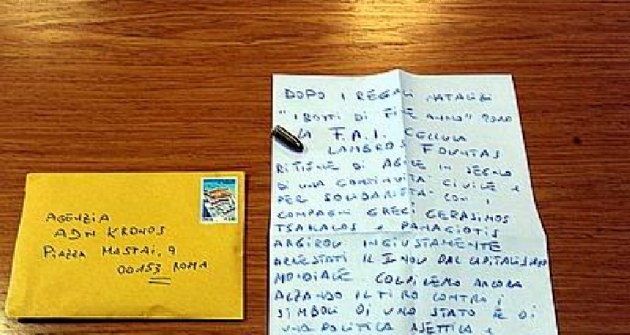 AGENZIA
ADN KRONOS
PIAZZA MASTAI, 9
00153 ROMA
DOPO I REGALI NATALIZI
"I BOTTI DI FINE ANNO"
LA F.A.I. CELLULA
LAMBROS FOUNTAS
RITIENE DI AGIRE IN SEGNO
DI UNA CONTINUITÀ CIVILE E
PER SOLIDARIETÀ CON I
COMPAGNI GRECI GERASIMOS
TSAKALOS E PANAGIOTIS
ARGIROU INGIUSTAMENTE
ARRESTATI IL DAL CAPITALISMO
MONDIALE. COLPIREMO ANCORA
ALZANDO IL TIRO CONTRO I
SIMBOLI DI UNO STATO E DI
UNA POLITICA ASETTICA E